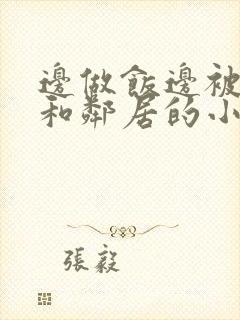 邊做飯邊被
和鄰居的小
張毅